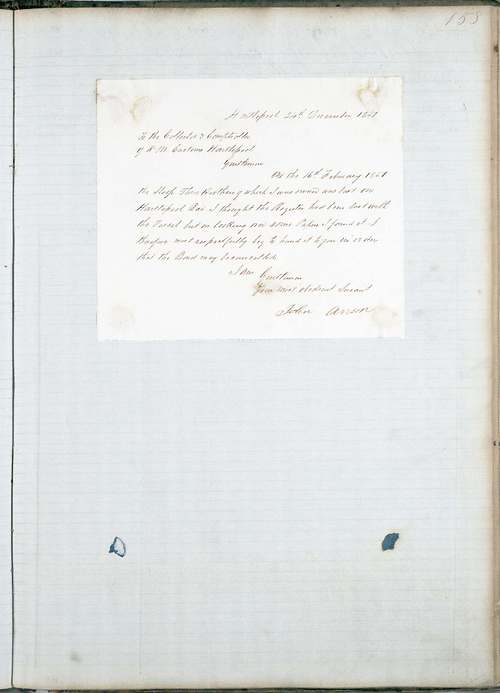 158
Hartlepool 24th December 1861
To the Collector & Comptroller
of H. M. Customs Hartlepool
Gentlemen
On the 16th February 1861
the Sloop which I was owner was lost on
Hartlepool Bar. I thought the Register had been lost with
the Vessel but on looking over some Papers I found it I
therefore most respectfully beg to hand it to you in order
that the Bond may be cancelled.
I am Gentlemen
Your most obedient Servant
John